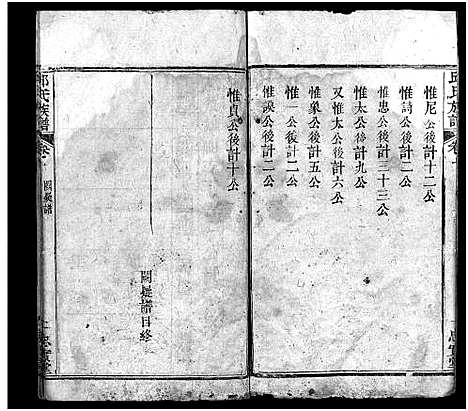 邱氏族譜
惟尼公後計十二公
惟詩公後計二公
惟忠公後計三十三公
惟太公後計九公
又惟太公後計六公
惟象公後計五公
惟一公後計二公
惟諛公後計二公
惟貞公後計十公
譜目終
邱氏族譜
卷